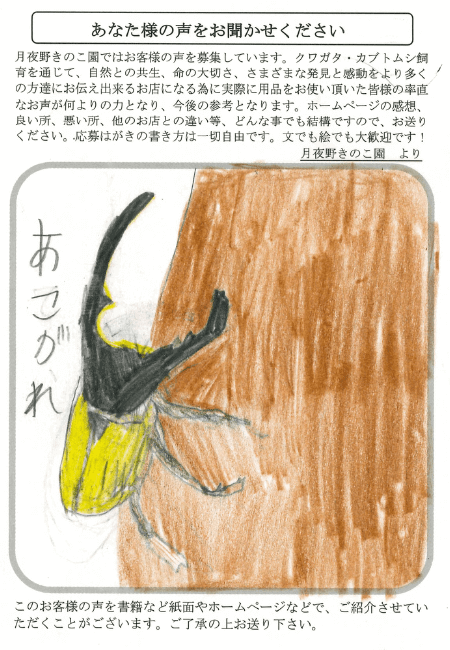 あなた様の声をお聞かせください
月夜野きのこ園ではお客様の声を募集しています。クワガタ・カブトムシ飼
育を通じて、自然との共生、命の大切さ、さまざまな発見と感動をより多く
の方達にお伝え出来るお店になる為に実際に用品をお使い頂いた皆様の率直
なお声が何よりの力となり、今後の参考となります。ホームページの感想、
良い所、悪い所、他のお店との違い等、どんな事でも結構ですので、お送り
ください。応募はがきの書き方は一切自由です。文でも絵でも大歓迎です！
月夜野きのこ園　より
あこがれ
このお客様の声を書籍など紙面やホームページなどで、ご紹介させてい
ただくことがございます。ご了承の上お送り下さい。